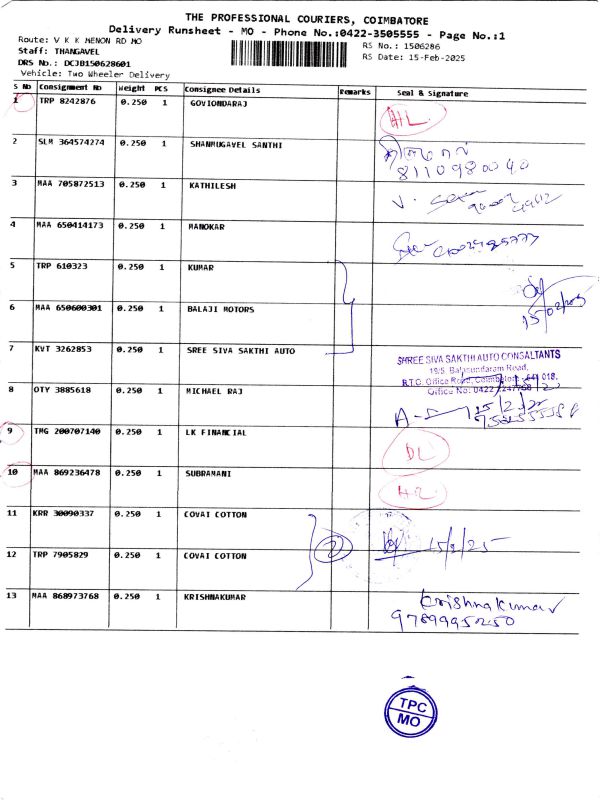 THE PROFESSIONAL COURIERS, COIMBATORE
Delivery Runsheet - MO - Phone No.:0422-3505555 - Page No.:1
Route: V K K MENON RD MO
RS No.: 1506286
Staff: THANGAVEL
RS Date: 15-Feb-2025
DRS No.: DCJB150628601
Vehicle: Two Wheeler Delivery
S No Consignment No Weight PCS Consignee Details Remarks Seal & Signature
1 TRP 8242876 0.250 1 GOVIONDARAJ
2 SLM 364574274 0.250 1 SHANMUGAVEL SANTHI
8110980040
3 MAA 705872513 0.250 1 KATHILESH
4 MAA 650414173 0.250 1 MANOKAR
5 TRP 610323 0.250 1 KUMAR
6 MAA 650600301 0.250 1 BALAJI MOTORS
7 KVT 3262853 0.250 1 SREE SIVA SAKTHI AUTO
SHREE SIVA SAKTHI AUTO CONSALTANTS
19/5, Balasundaram Road,
R.T.O. Office Road, Coimbatore - 641 018.
Office No: 0422
8 OTY 3885618 0.250 1 MICHAEL RAJ
9 TMG 200707140 0.250 1 LK FINANCIAL
DL
10 MAA 869236478 0.250 1 SUBRAMANI
11 KRR 30090337 0.250 1 COVAI COTTON
2 15/2/25
12 TRP 7905829 0.250 1 COVAI COTTON
13 MAA 868973768 0.250 1 KRISHNAKUMAR
Krishnakumar
9789995250
TPC
MO